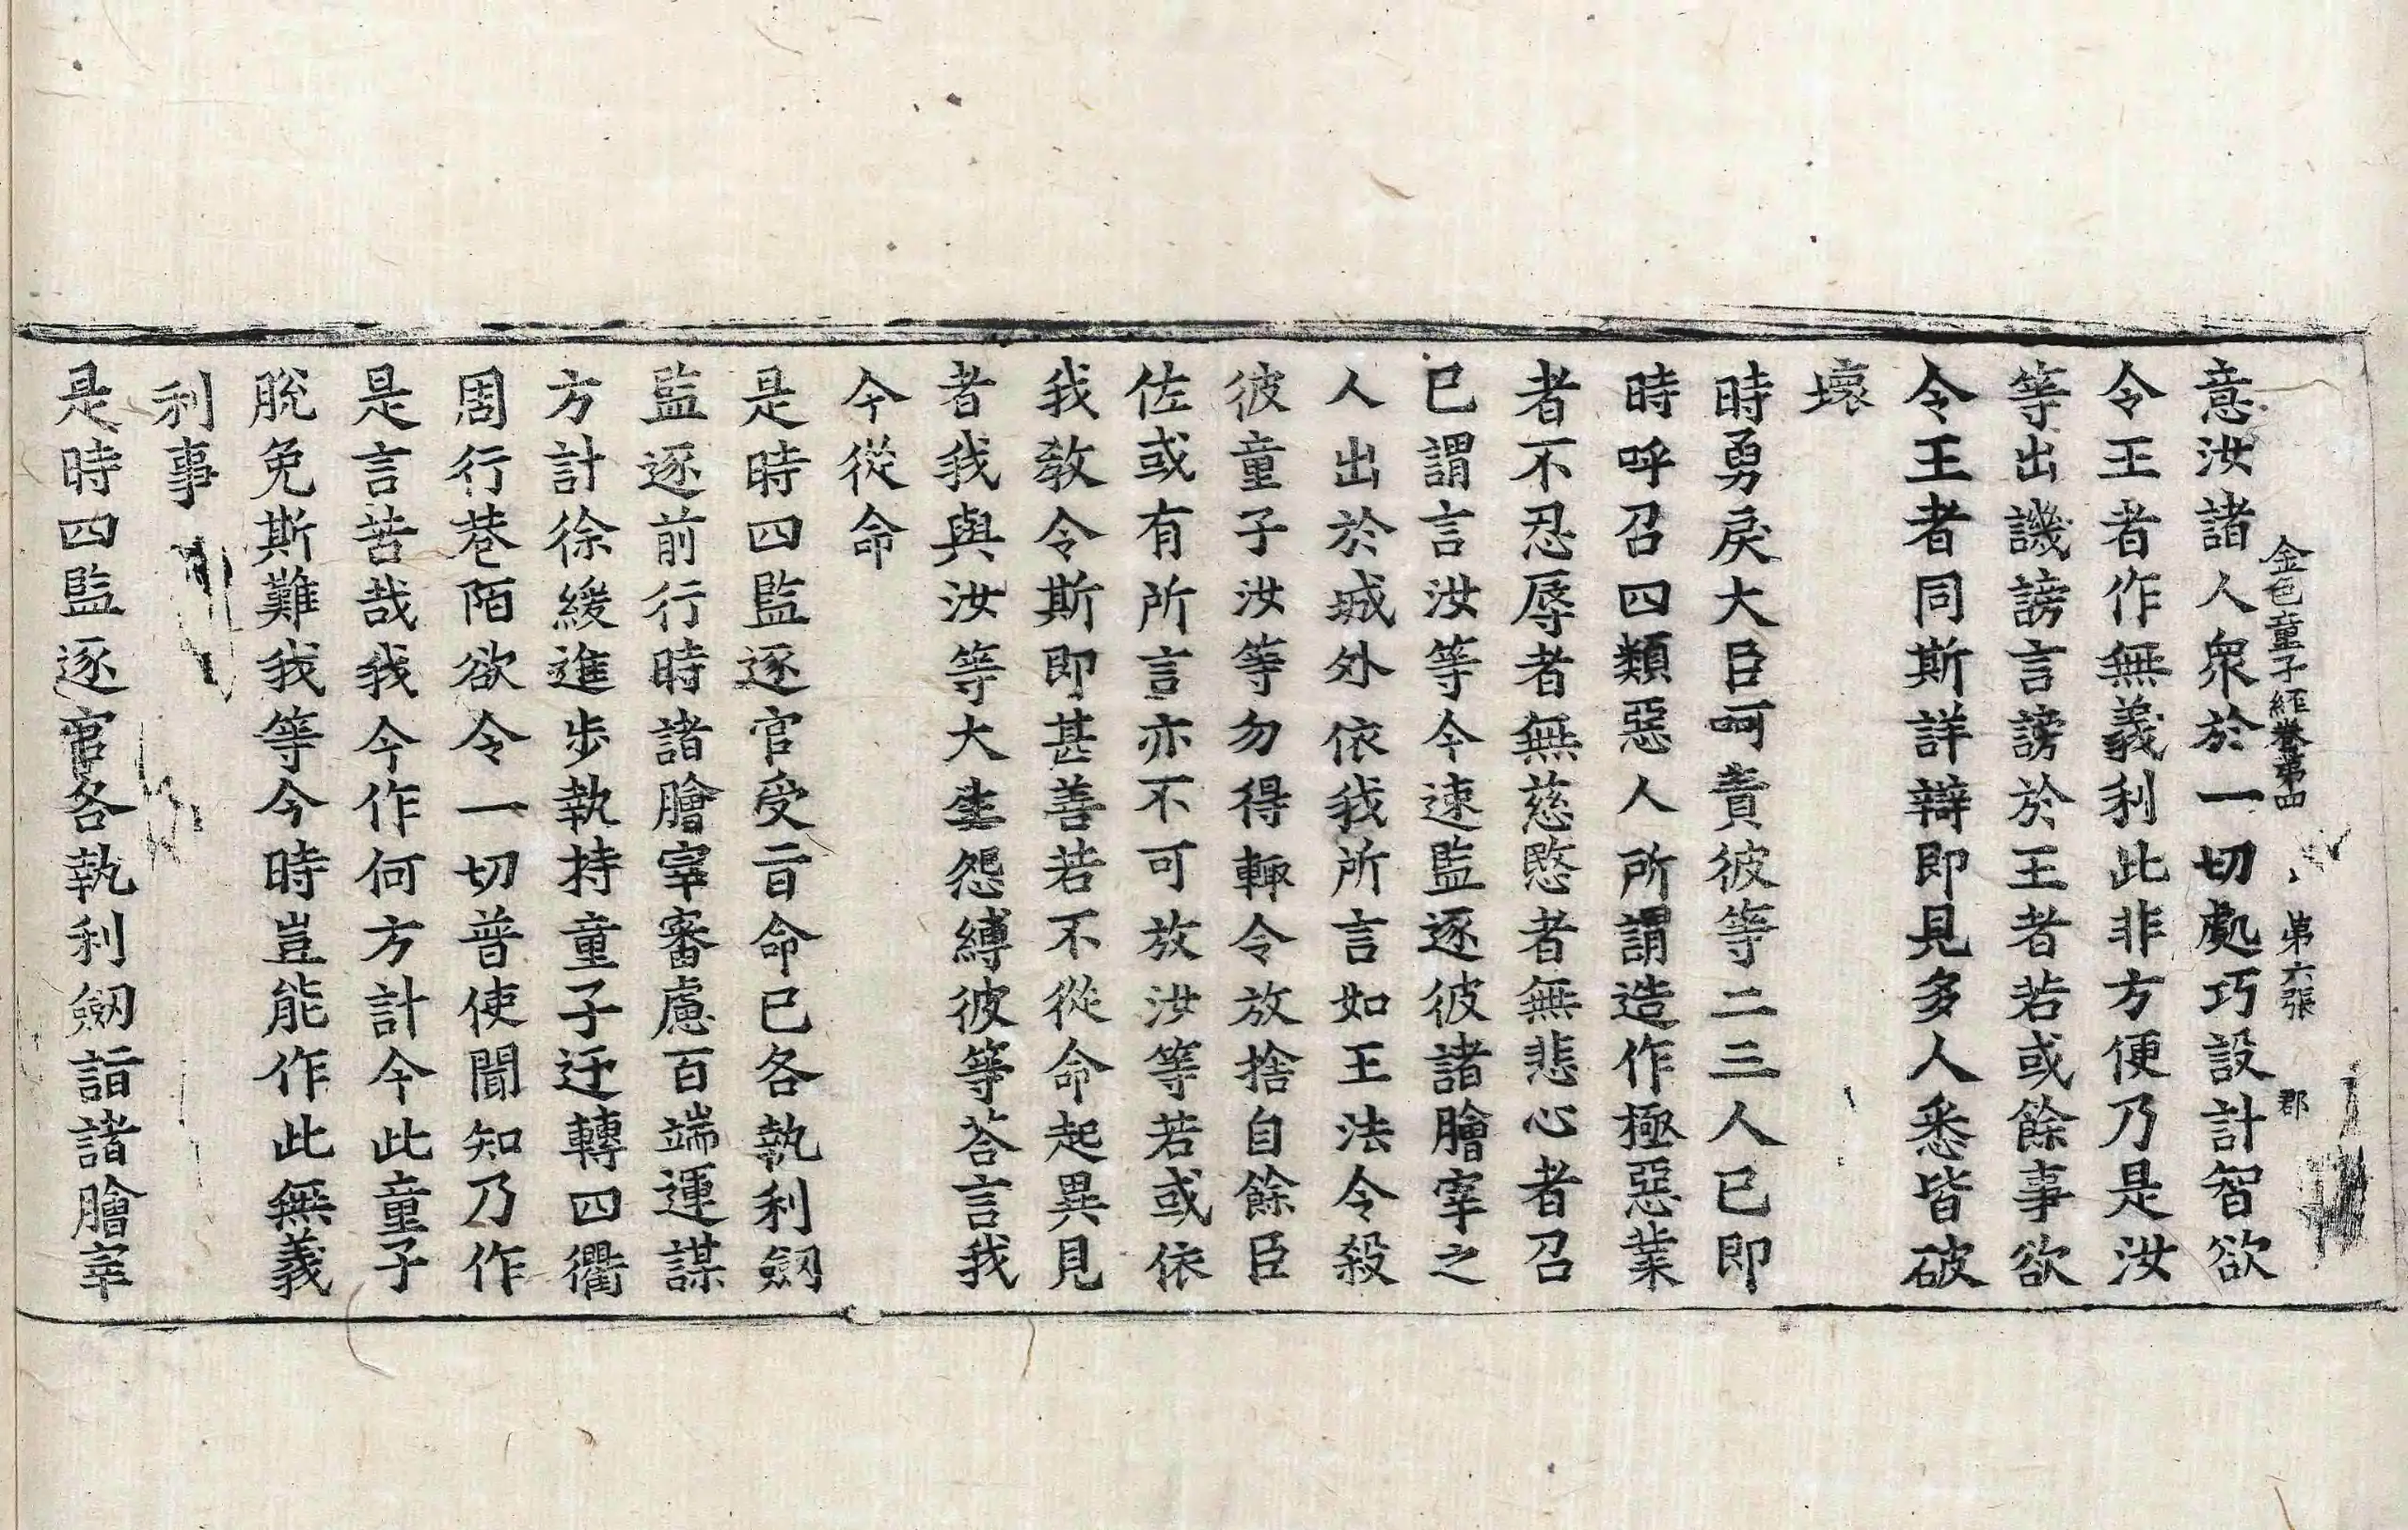 金色童子經卷第四　第六張　郡
意汝諸人衆於一切處巧設計智欲
令王者作無義利此非方便乃是汝
等出譏謗言謗於王者若或餘事欲
令王者同斯詳辯即見多人悉皆破
壞
時勇戾大臣呵責彼等二三人已即
時呼召四類惡人所謂造作極惡業
者不忍辱者無慈愍者無悲心者召
已謂言汝等今速監逐彼諸膾宰之
人出於城外依我所言如王法令殺
彼童子汝等勿得輙令放捨自餘臣
佐或有所言亦不可放汝等若或依
我敎令斯即甚善若不從命起異見
者我與汝等大生怨縛彼等荅言我
今從命
是時四監逐官受旨命已各執利劒
監逐前行時諸膾宰審慮百端運謀
方計徐緩進步執持童子迂轉四衢
周行巷陌欲令一切普使聞知乃作
是言苦哉我今作何方計令此童子
脫免斯難我等今時豈能作此無義
利事
是時四監逐官各執利劒詣諸膾宰